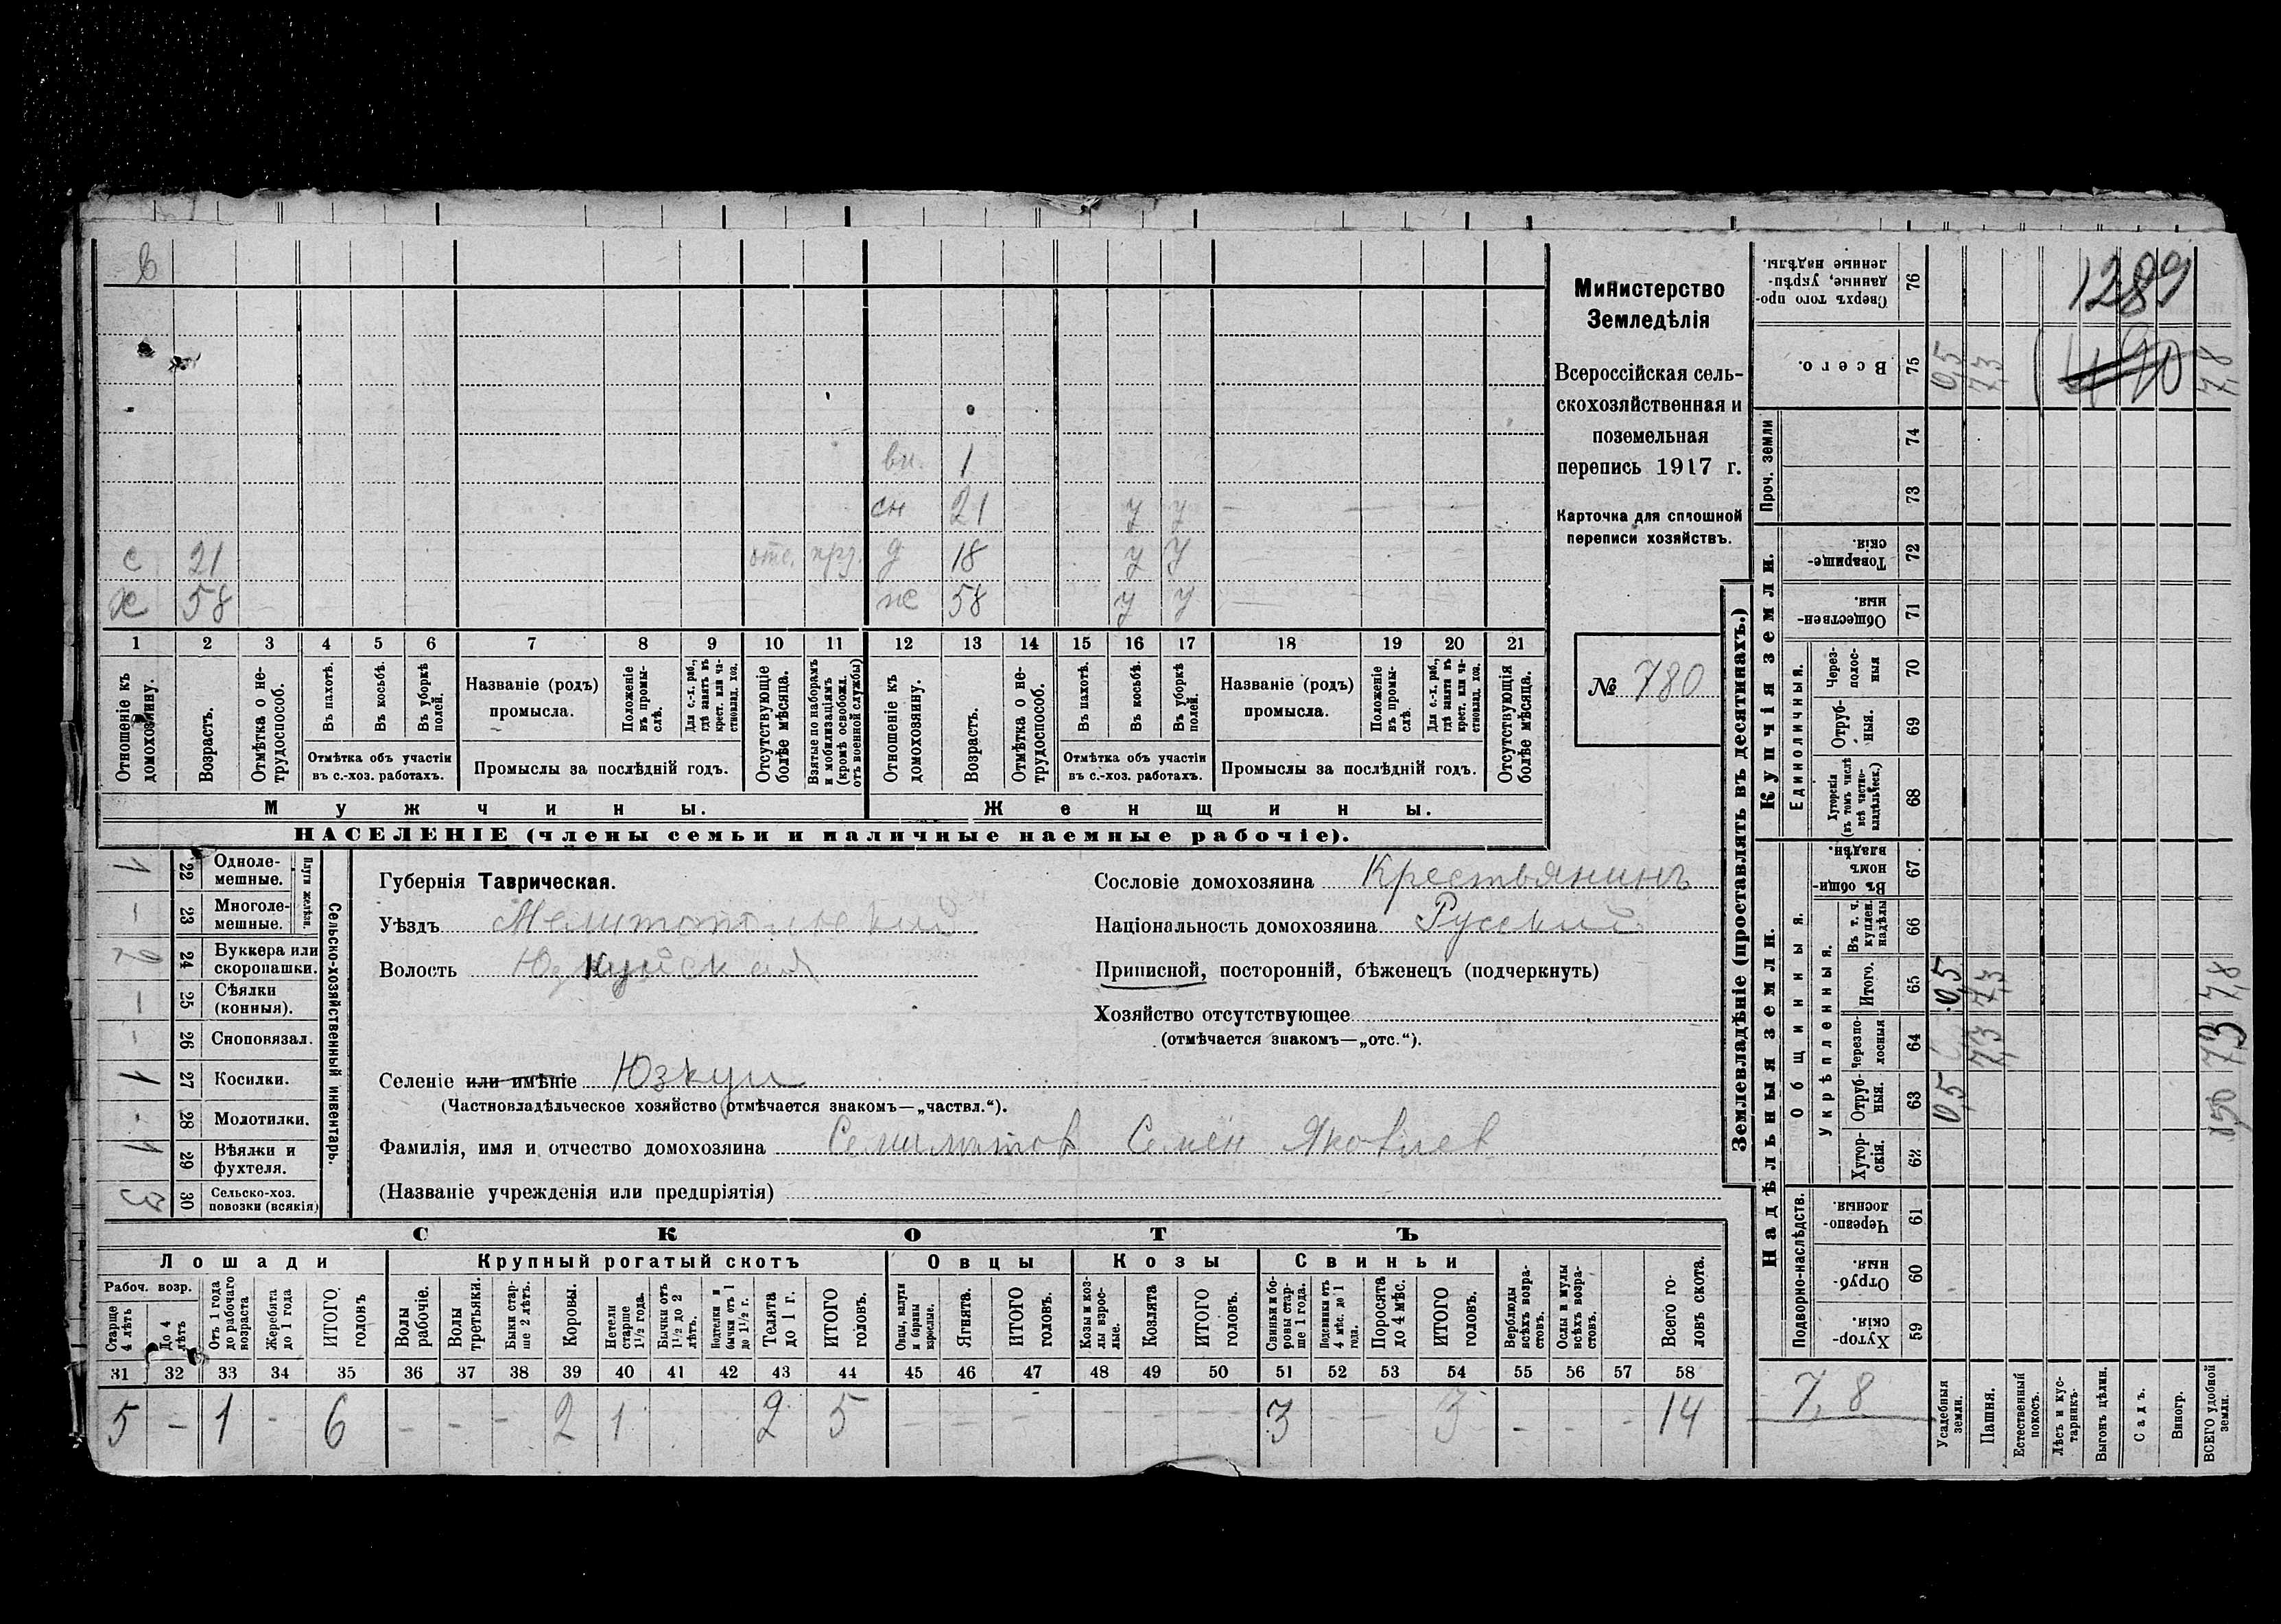 в
вн. 1
сн 21 у у
с 21 отс. д 18 у у
х 58 ж 58 у у
1 2 3 4 5 6 7 8 9 10 11 12 13 14 15 16 17 18 19 20 21
Отношеніе къ домохозяину.
Возрастъ.
Отмѣтка о не-трудоспособ.
Въ пахотѣ.
Въ косьбѣ.
Въ уборкѣ полей.
Отмѣтка объ участіи
въ с.-хоз. работахъ.
Названіе (родъ)
промысла.
Положеніе въ промы-слѣ.
Для с.-х. раб., гдѣ занятъ въ крест. или ча-стновлад. хоз.
Промыслы за послѣдній годъ.
Отсутствующіе болѣе мѣсяца.
Взятые по наборамъ и мобилизаціямъ (кромѣ освобожд. отъ военной службы)
Отношеніе къ домохозяину.
Возрастъ.
Отмѣтка о не-трудоспособ.
Въ пахотѣ.
Въ косьбѣ.
Въ уборкѣ полей.
Отмѣтка объ участіи
въ с.-хоз. работахъ.
Названіе (родъ)
промысла.
Положеніе въ промы-слѣ.
Для с.-х. раб., гдѣ занята въ крест. или ча-стновлад. хоз.
Промыслы за послѣдній годъ.
Отсутствующія болѣе мѣсяца.
Мужчины. Женщины.
НАСЕЛЕНІЕ (члены семьи и наличные наемные рабочіе).
Министерство
Земледѣлія
Всероссійская сель-
скохозяйственная и
поземельная
перепись 1917 г.
Карточка для сплошной
переписи хозяйствъ.
№ 780
1 22 Одноле-
мешные.
Плуги желѣзн.
– 23 Многоле-
мешные.
2 24 Буккера или
скоропашки.
– 25 Сѣялки
(конныя).
– 26 Сноповязал.
1 27 Косилки.
- 28 Молотилки.
1 29 Вѣялки и
фухтеля.
3 30 Сельско-хоз.
повозки (всякія)
Сельско-хозяйственный инвентарь.
Губернія Таврическая.
Уѣздъ Мелитопольскій
Волость Юзкуйская
Селеніе или имѣніе Юзкуи
(Частновладѣльческое хозяйство отмѣчается знакомъ—„частвл.“).
Фамилія, имя и отчество домохозяина Семен Яковлев
(Названіе учрежденія или предпріятія)
Сословіе домохозяина Крестьянинъ
Національность домохозяина Русский
Приписной, посторонній, бѣженецъ (подчеркнуть)
Хозяйство отсутствующее
(отмѣчается знакомъ—„отс.“).
СКОТЪ
Лошади Крупный рогатый скотъ Овцы Козы Свиньи
Рабоч. возр.
Старше 4 лѣтъ
До 4 лѣтъ
Отъ 1 года до рабочаго возраста
Жеребята до 1 года
ИТОГО головъ
Волы рабочіе.
Волы третьяки.
Быки стар-ше 2 лѣтъ.
Коровы.
Нетели старше 1 1/2 года.
Бычки отъ 1 1/2 до 2 лѣтъ.
Подтелки и бычки отъ 1 до 1 1/2 г.
Телята до 1 г.
ИТОГО головъ.
Овцы, валухи и бараны взрослые.
Ягнята.
ИТОГО головъ.
Козы и коз-лы взрос-лые.
Козлята
ИТОГО головъ.
Свиньи и бо-ровы стар-ше 1 года.
Подсвинки отъ 4 мѣс. до 1 года.
Поросята до 4 мѣс.
ИТОГО головъ.
Верблюды всѣхъ возра-стовъ.
Ослы и мулы всѣхъ возра-стовъ.
Всего го-ловъ скота.
31 32 33 34 35 36 37 38 39 40 41 42 43 44 45 46 47 48 49 50 51 52 53 54 55 56 57 58
5 – 1 - 6 – – – 2 1 2 5 – – – – – – 3 – 3 – – - 14
Землевладѣніе (проставлять въ десятинахъ.)
Купчія земли.
Надѣльныя земли.
Сверхъ того про-данные, укрѣп-ленные надѣлы. 76
1289
Всего. 75 0,5 7,3 7,8
Проч. земли
74
73
Товарище-скія. 72
Обществен-ныя. 71
Единоличныя.
Через-полос-ныя 70
Отруб-ныя. 69
Хуторскія (въ томъ числѣ всѣ частно-владѣльческ.) 68
Общинныя.
Въ общи-номъ владѣн. 67
Укрѣпленныя.
Въ т. ч. куплен. надѣлы 66
Итого. 65 0,5 7,3 7,8
Черезпо-лосныя 64 7,3 7,3
Отруб-ныя. 63 0,5
Хутор-скія. 62
Подворно-наслѣдств.
Черезпо-лосныя. 61
Отруб-ныя. 60
Хутор-скія. 59
7,8
Усадебныя земли.
Пашня.
Естественный покосъ.
Лѣсъ и кус-тарникъ.
Выгонъ цѣлин.
Садъ.
Виногр.
ВСЕГО удобной земли.